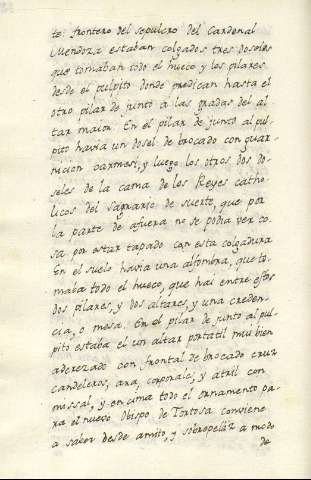 te: frontero del sepulcro del Cardenal
Mendoza estaban colgados tres doseles
que tomaban todo el hueco y los pilares
desde el pulpito donde predican hasta el
otro pilar de junto a las gradas del al
tar maior. En el pilar de junto al pul
pito havia un dosel de brocado con guar
nicion carmesi, y luego los otros dos do
seles de la cama de los Reyes catho
licos del sagrario de suerte, que por
la parte de afuera no se podia ver co
sa por estar tapado con esta colgadura
En el suelo havia una alfombra, que to
maba todo el hueco, que hai entre estos
dos pilares, y dos altares, y una creden
cia, o mesa. En el pilar de junto al pul
pito estaba el un altar portatil mui bien
aderezado con frontal de brocado cruz
candeleros, ara, corporales, y atril con
missal, y encima todo el ornamento pa
ra el nuevo Obispo de Tortosa conviene
a saber desde amito, y sobrepelliz a modo
de